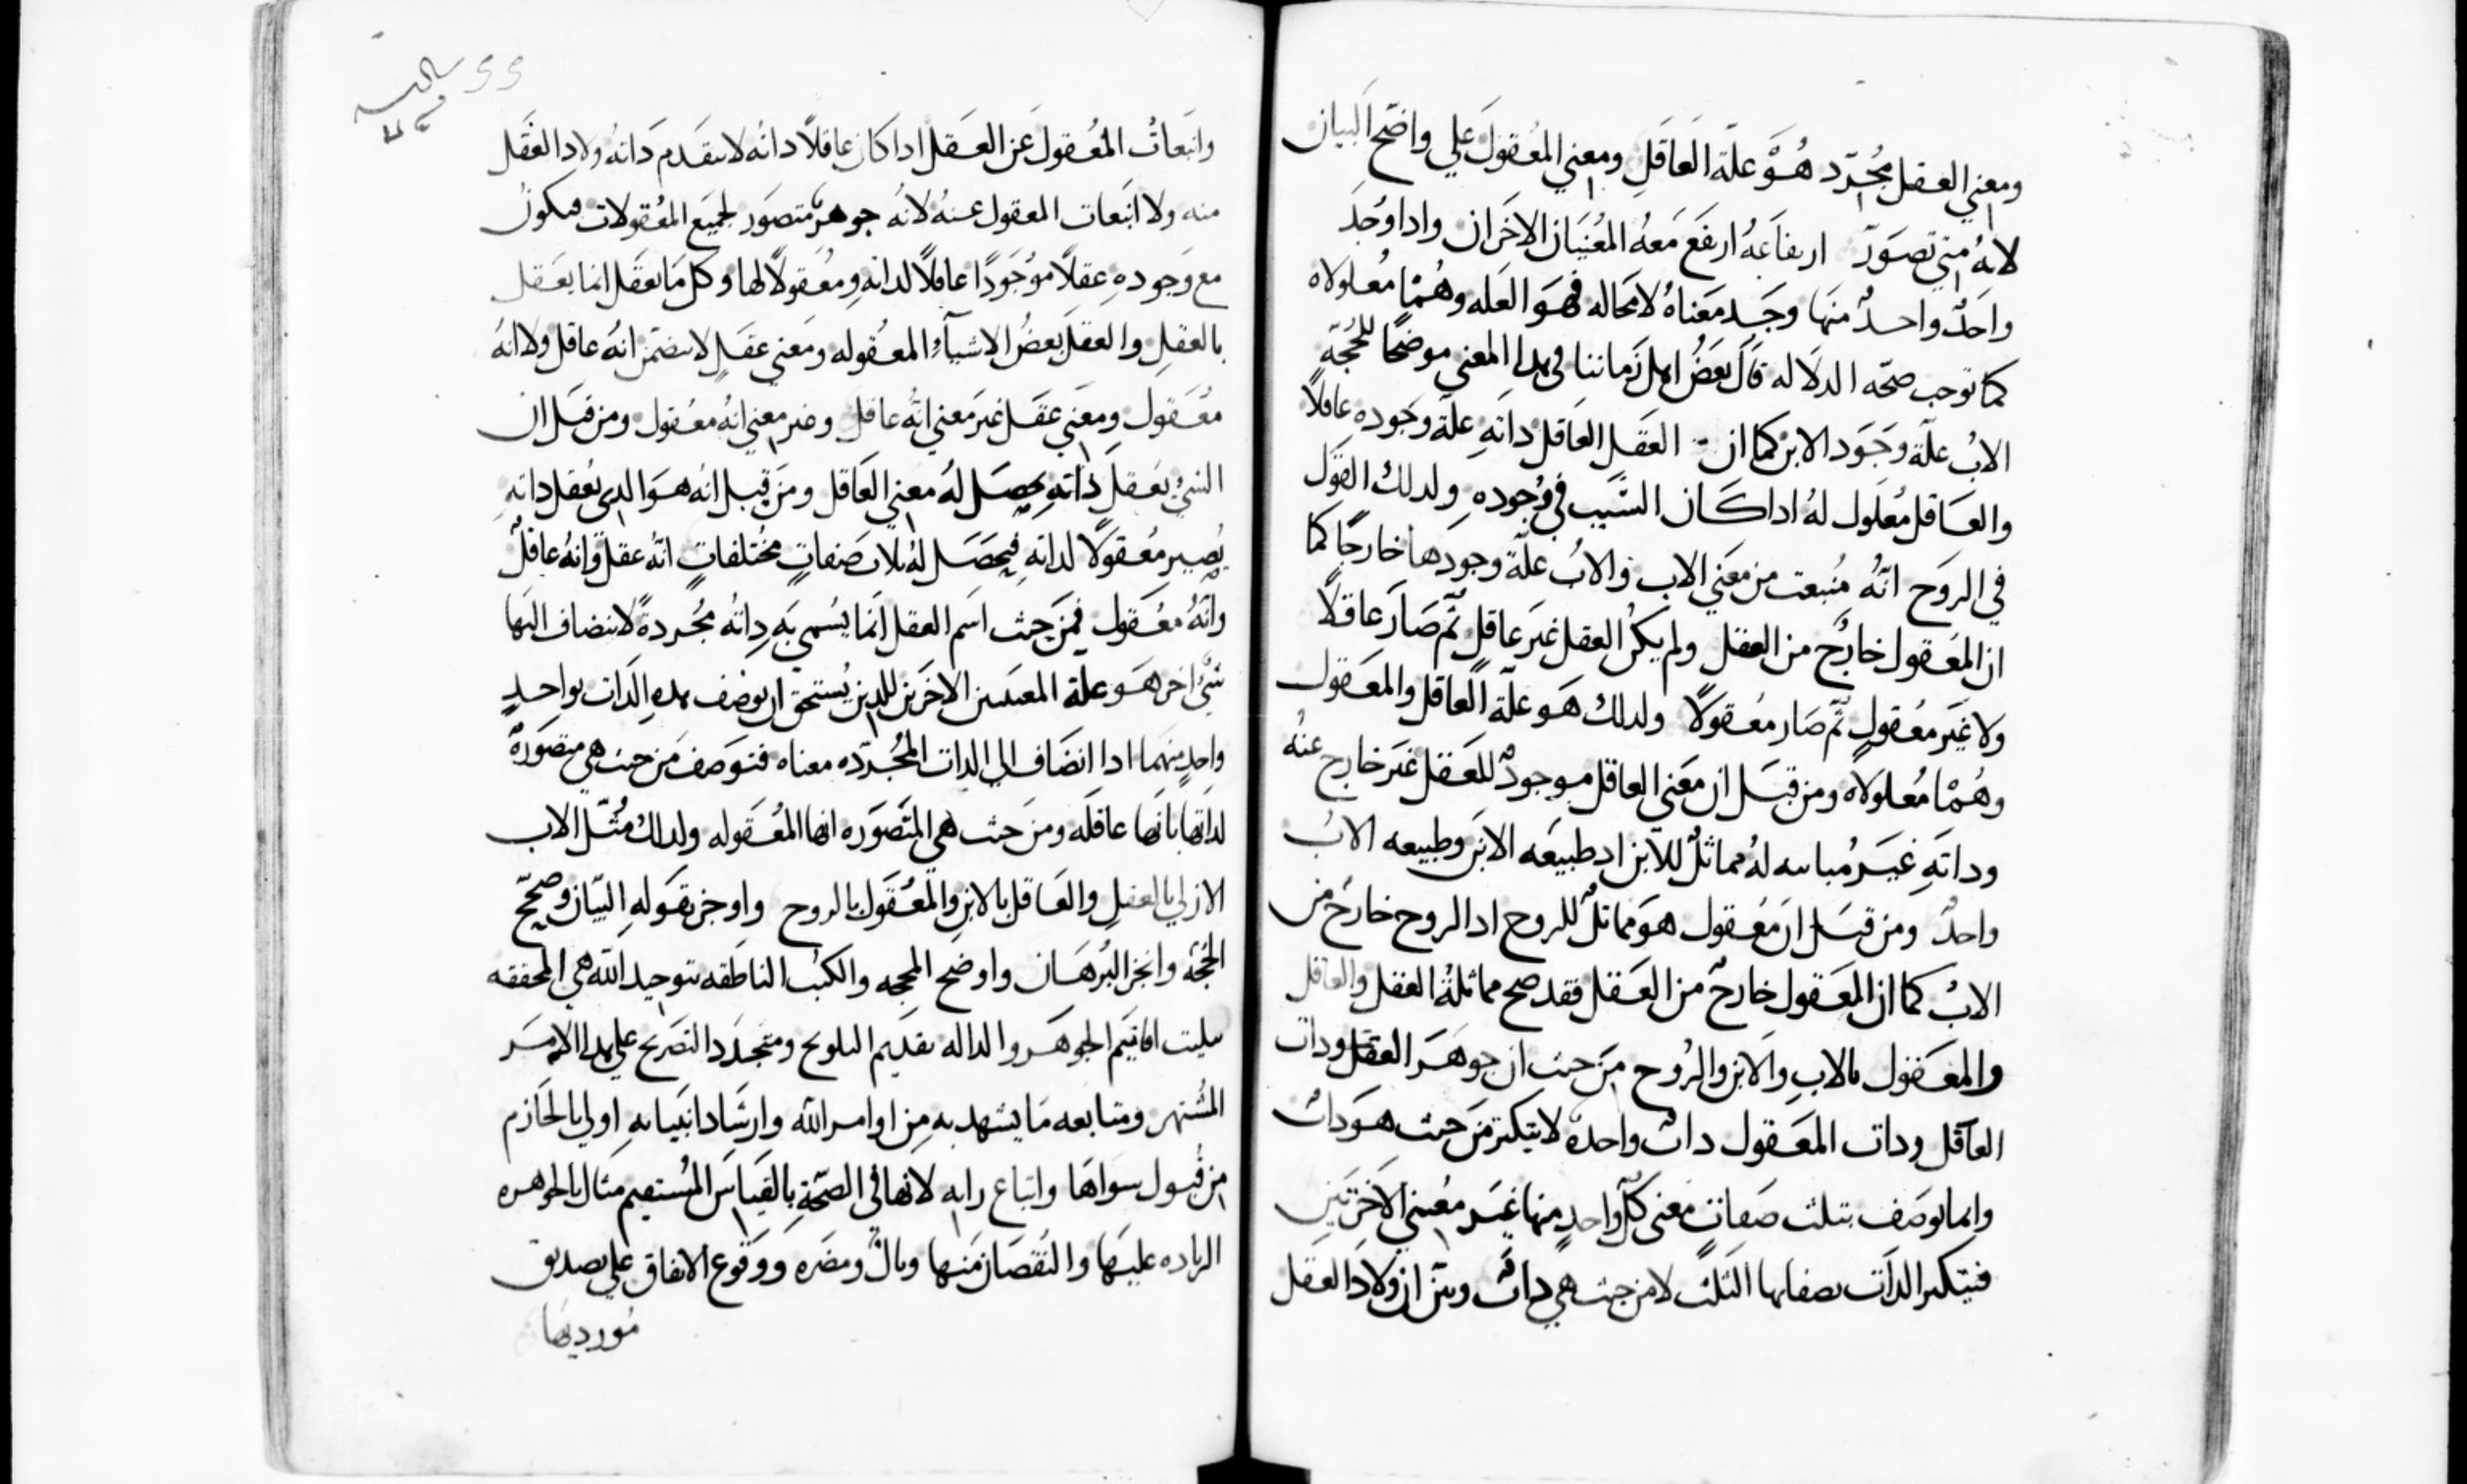 ومعني العقل مجرّد هُوَ علّة العَاقَلِ ومعني المُعقولَ علي واضح البيان
لانهُ متي تصوَرّ ارىفاَعهُ ارىفَع مَعهُ المُعنَيَان الاخَران واداوُجدَ
واحَدٌ واحدٌ منهَا وجَد مَعَناهُ لامحاله فهوَ العَله وهُمْا مُعلولاه
كما توجب صحّه الدلَاله قالَ بعَضُ اهل زَماننا في هدا المعني موضحًا للحُجّةٍ
الابُ علّة وجَوَد الابن كما ان العقَل العَاقل داتَهِ علّة وجَوده عاقلاً
والعَاقل مُعلَول لهُ اداكَان السَّبب في وُجودهِ ولدلك القوَل
في الروَح انّهُ مُنبعت من معَني الاب والابُ علّة وجودَها خارجًا كما
ان المُعقول خارجٌ من العقل ولم يكنُ العقل غيَر عاقلٍ ثم صَارَ عاقلاً
ولاغيَر معُقولٍ ثم صَار معُقولاً ولدلك هَو علّة العاقل والمعَقول
وهُمْا مُعلولاه ومن قبَل ان معَني العاقل موجودٌ للعَقل غيَر خارج عنهُ
وداتَهِ غيَر مُباىنه لهُ مماثلٌ للابن اد طبيعَه الابَن وطبيعه الابُ
واحدٌ ومن قبَل انَ مَعُقول هوَ مماتلٌ للروح ادالروح خارجٌ من
الابُ كما ان المعَقول خارجٌ من العَقل فقد صح مماثلةُ العقل والعاقل
والمعَقول بالابِ والابن والرُوح مِنَ حيث ان جوهَر العقل ودات
العاقل ودات المعَقول داتٌ واحدهٌ لايتكترَ مَن حيت هوَداتٌ
وانما توصَف بتلت صَفاتٍ معنى كلّ واحدٍ منها غيَر معُنىَ الاخَرتيَن
فيتكتر الداَت بصفاتها التلث لامن جهت هي داتٌ وبيّن ان ولادَ العقل
وانبَعاتُ المُعقولَ عَن العَقل اداكان عاقلاً داتهُ لاىىقَدم دَاتهُ ولاد العقَل
منه ولا انبَعات المعقول عنهُ لانهُ جوهرٌ متصوَر لجميَع المعُقولات فىكونُ
مع وَجودهِ عقلاً موُجَودًا عاقلاً لداتهِ ومعُقولاً لها وكل مَا ىعقَل انما يعَقل
بالعقلِ والعقلَ بعضُ الاشيآءِ المعُقوله ومَعني عقَلٍ لاىىضمَن انهُ عاقل ولاانهُ
معُقول ومعَني عقَل غيَر معني انّهُ عاقل وغير معني انهُ معُقول ومن قبَل ان
الشيُ يعُقلَ ذاتهِ يحصَل لهُ معني العَاقل ومَن قبل انه هوَالدي يعُقل داتهِ
يُصير معُقولاً لداتهِ فيحصَل لهُ ىلاث صَفاتٍ مختُلفاتٍ انّهُ عقلٌ وانهُ عاقلٌ
وانّهُ معُقول فمَن حيث اسَم العقل انَما يُسمي بَه داتهُ مجُردةً لاىنضاف اليَها
شيٌ اخر هَو علة المعنىىن الاخَرين للدين يُستحق ان يوصَف بهدهِ الدَات بواحدٍ
واحدٍ منهَما ادا انضاَف الي الدات المجُرّده معناه فتوَصف مَن حيث هي متصَورهٌ
لداَتها باَنهَا عاقلَه ومنَ حَيث هي المتَصوَره انها المُعقَوله ولدلك مُثّل الاب
الازلي بالعقلِ والعَاقل بالابنِ والمعُقوَل بالروح واوجز بقوَلهِ البيّان وصَحّح
الحُجّه وانجز البُرهَان واوضح المحجه والكتُب الناطقه بتوحيد الله هي المحققه
ىىليت اقانيَم الجوهَر والداله ىقدَيم التلويح ومتجَدد التصَريح علي هدا الامَر
المشُتهر ومتابعه مَا يشهد بهِ مِن اوامر الله وارشَاد انبيَائهِ اولي بالحَازم
من قبُول سوَاهَا واتباع رايه لانها في الصّحةِ بالقيَاس المُستقيم مثال بالجوهره
الزياده عليَها والنقُصَان منَها وبالٌ ومضَره ووَقوع الاتفاق علي ىصديق
مُورديهَا